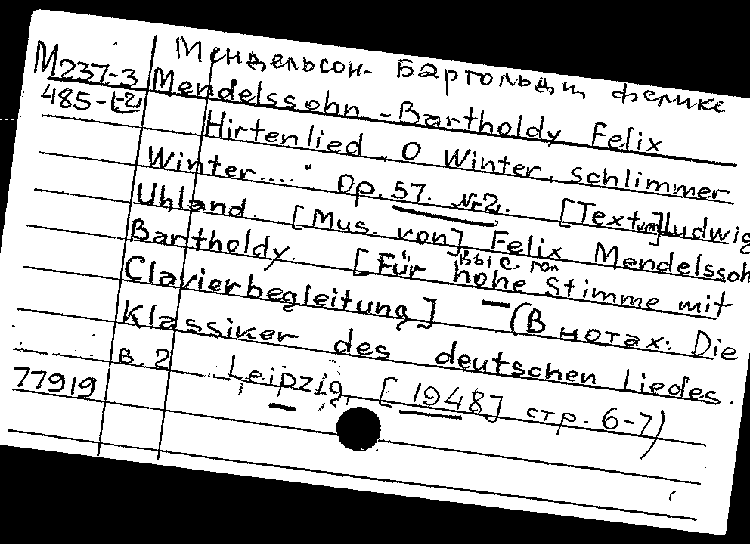 Мендельсон-Бартольди Феликс
М237-3 Mendelssohn-Bartholdy Felix
485-
Hirtenlied. O Winter, schlimmer
Winter.... Op. 57. Nr 2. [Text um] Ludwig
Uhland. [Mus. von] Felix Mendelssoh
Bartholdy. [Für hohe Stimme mit
выс. гол
Clavierbegleitung] – (В нотах: Die
Klassiker des deutschen Liedes.
B. 2 Leipzig, [1948] стр. 6-7)
77919